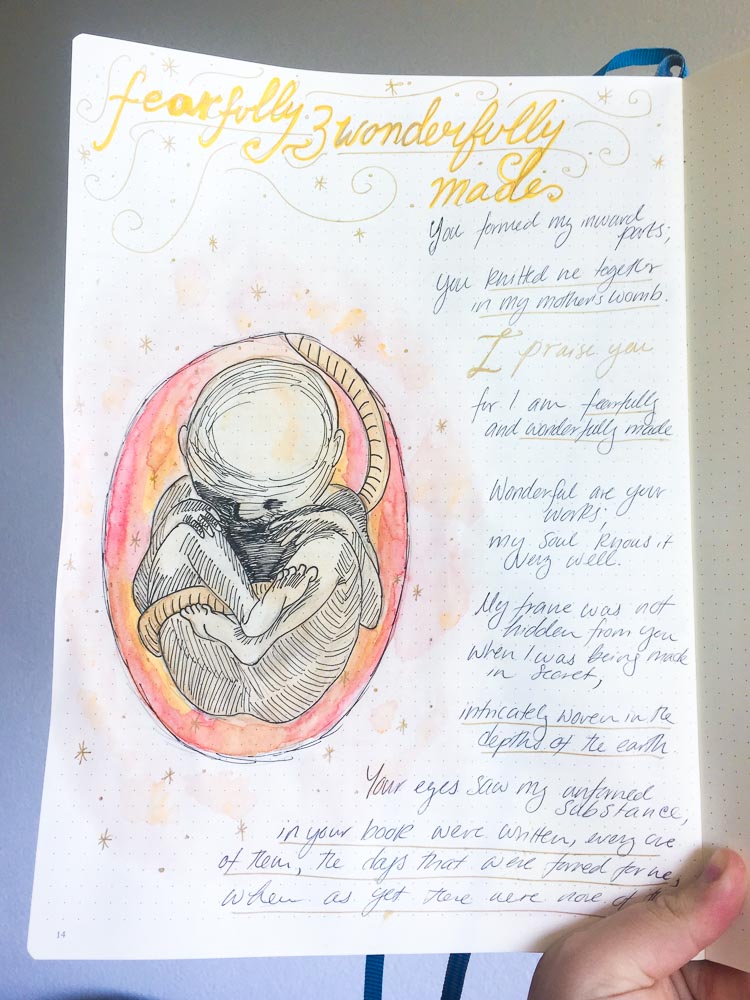 fearfully & wonderfully
made
You formed my inward
parts;
you knitted me together
in my mother's womb.
I praise you
for I am fearfully
and wonderfully made
Wonderful are your
works;
my soul knows it
very well.
My frame was not
hidden from you
when I was being made
in secret,
intricately woven in the
depths of the earth
Your eyes saw my unformed
substance;
in your book were written, every one
of them, the days that were formed for me,
when as yet there were none of
14